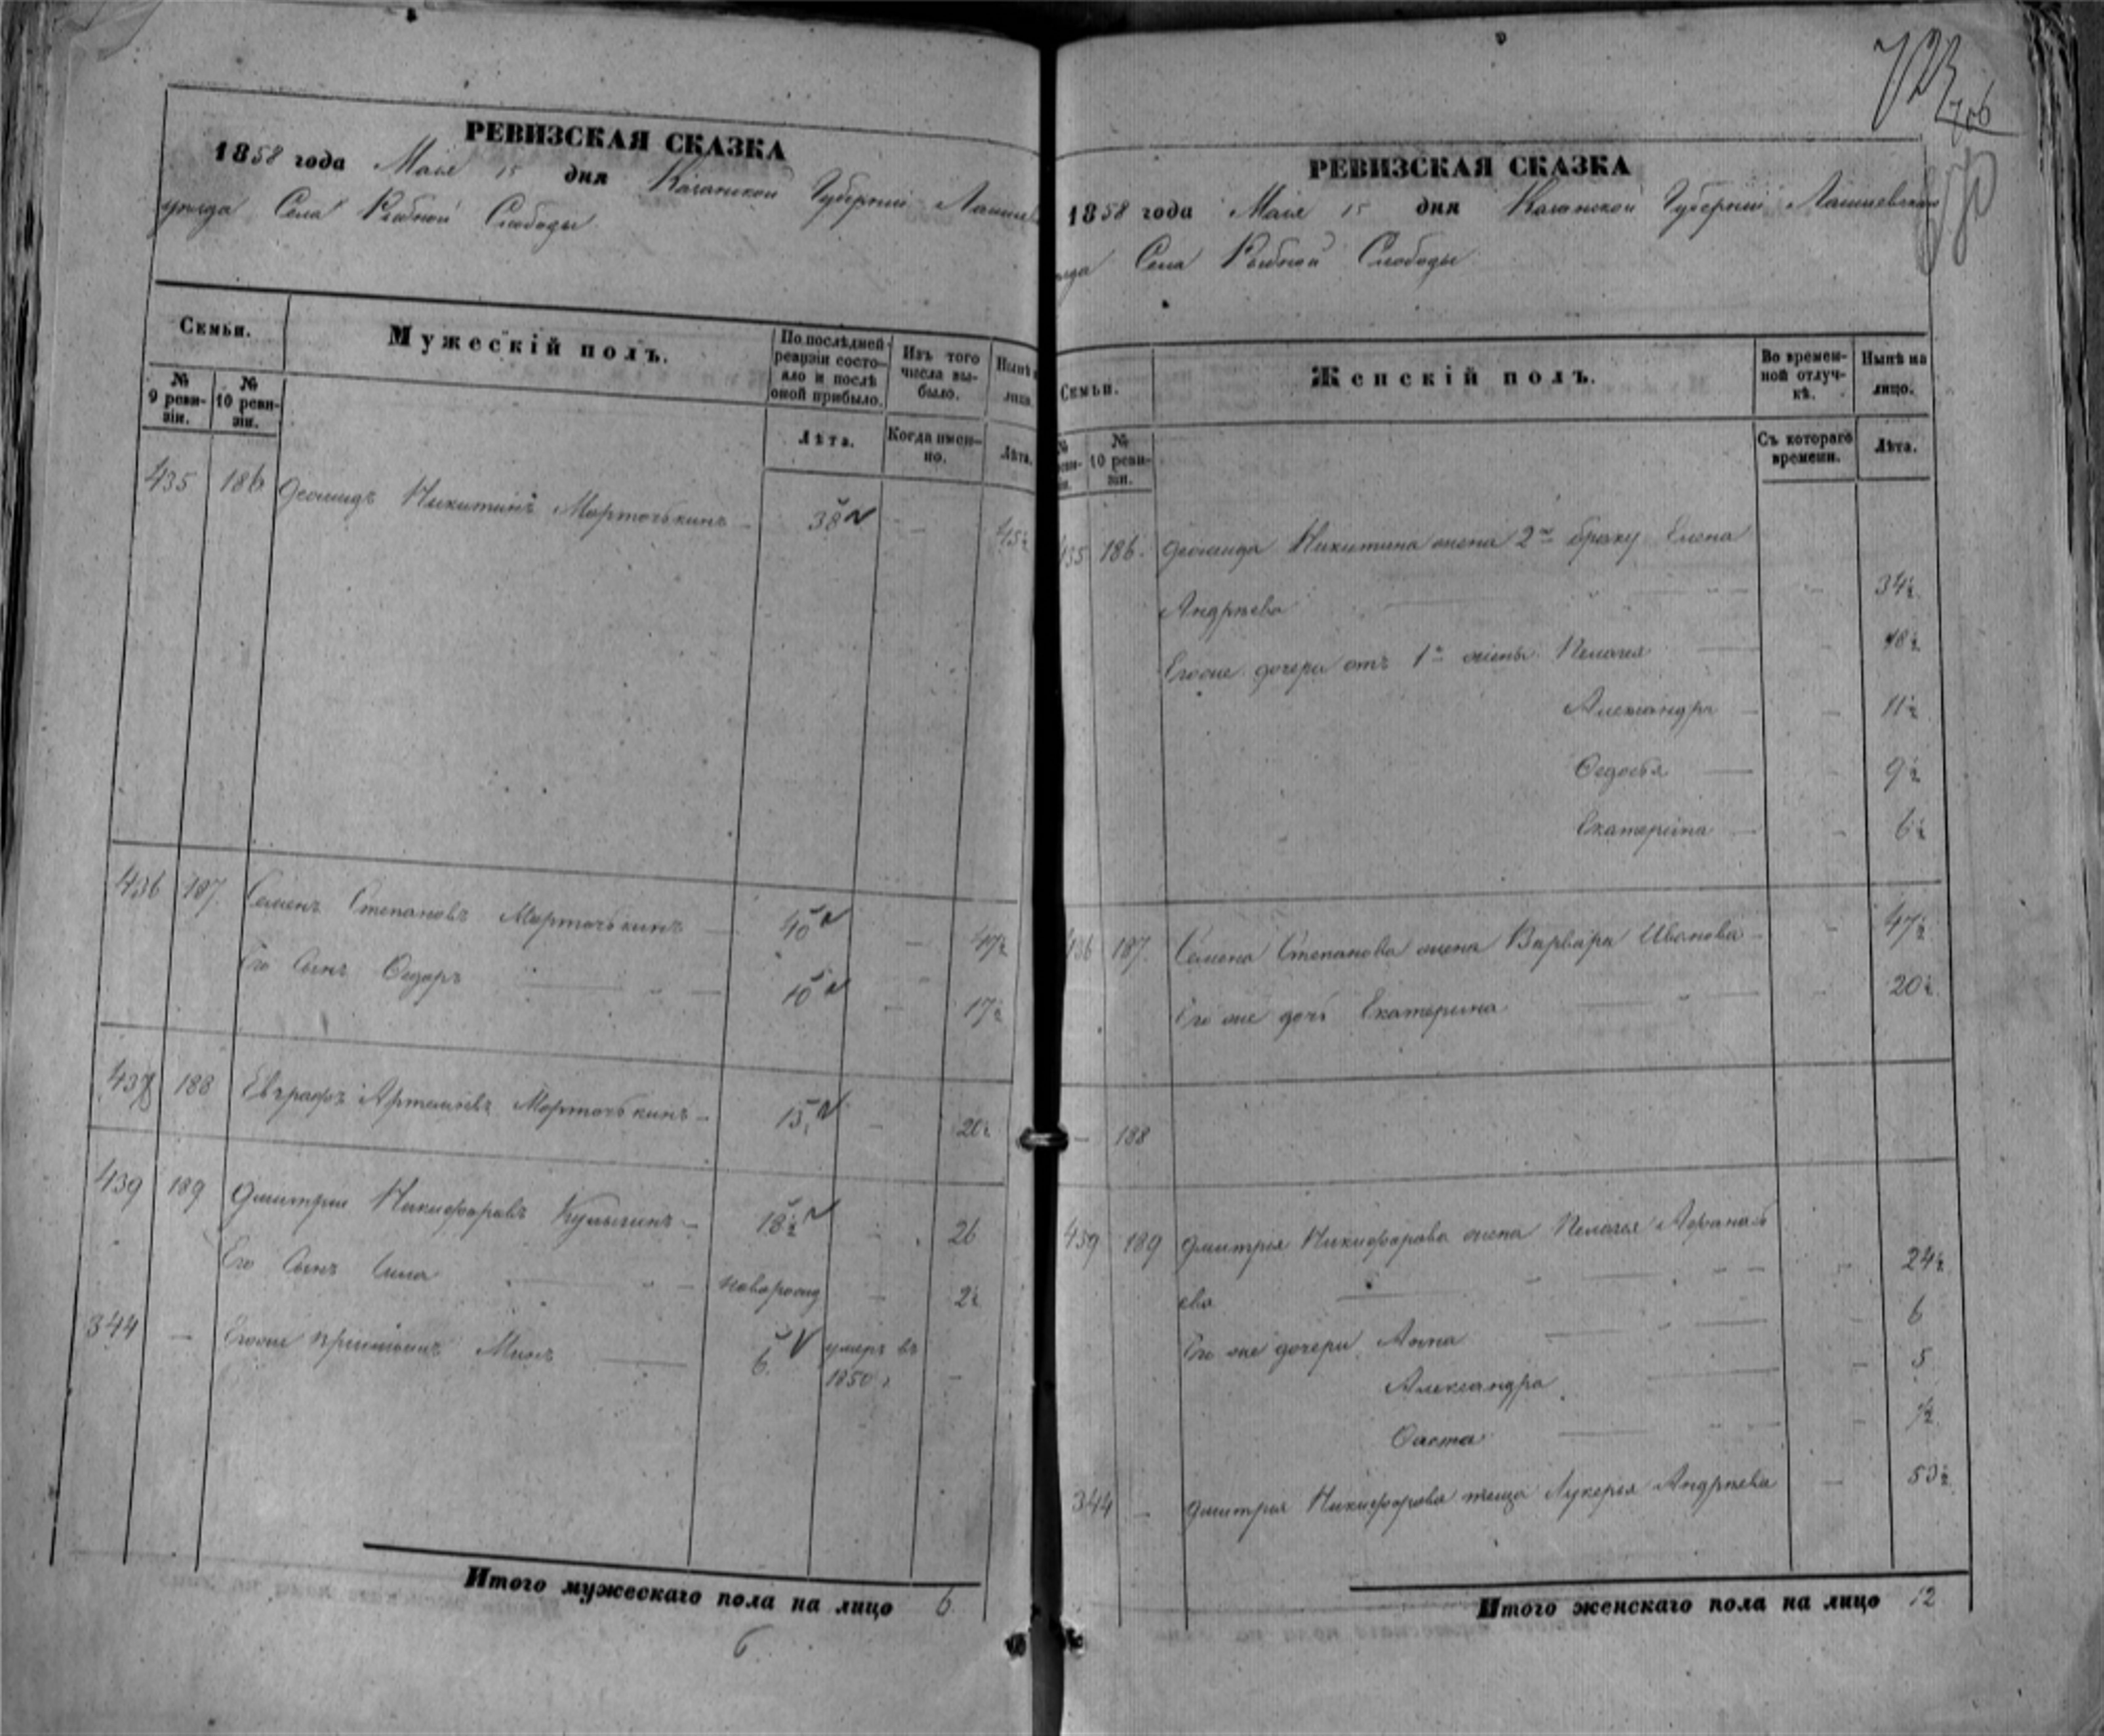 РЕВИЗСКАЯ СКАЗКА
1858 года Мая 15 дня Казанской Губернiи Лаишев
уѣзда Села Рыбной Слободы
Семьи.
Мужескiй полъ.
По послѣдней ревизiи состояло и послѣ оной прибыло.
Изъ того числа выбыло.
Нынѣ на лицо.
№ 9 ревизiи.
№ 10 ревизiи.
Лѣта.
Когда именно.
Лѣта.
435 186 Леонидъ Никитинъ Морточькинъ — 38 — 45½
436 187. Семенъ Степановъ Морточькинъ — 40 — 47½
Его Сынъ Ѳедоръ — 10 — 17½
437 188 Евграфъ Артемьевъ Морточькинъ — 13 — 20½
439 189 Дмитрiй Никифоровъ Кулыгинъ — 18½ 26
Его Сынъ Сила — новорожд — 2½
344 — Егоже прiимышъ 6. умеръ въ
1850 г —
Итого мужескаго пола на лицо 6.
6
723
706
РЕВИЗСКАЯ СКАЗКА
1858 года Мая 15 дня Казанской Губернiи Лаишевскаго
уѣзда Села Рыбной Слободы
Семьи.
Женскiй полъ.
Во временной отлучкѣ.
Нынѣ на лицо.
№ 10 ревизiи.
Съ котораго времени.
Лѣта.
435 186. Леонида Никитина жена 2го браку Елена
Андрѣева — 34½
Егоже дочери отъ 1й жены Пелагея — 18½
Александра — 11½
Ѳедосья — 9½
Екатерина — 6½
436 187. Семена Степанова жена Варвара Иванова — 47½
Его же дочь Екатерина — 20½
— 188
439 189 Дмитрiя Никифорова жена Пелагея Афанась
ева — 24½
Его же дочери Анна — 6
Александра — 5
½
344 — Дмитрiя Никифорова теща Лукерья Андрѣева — 53½
Итого женскаго пола на лицо 12